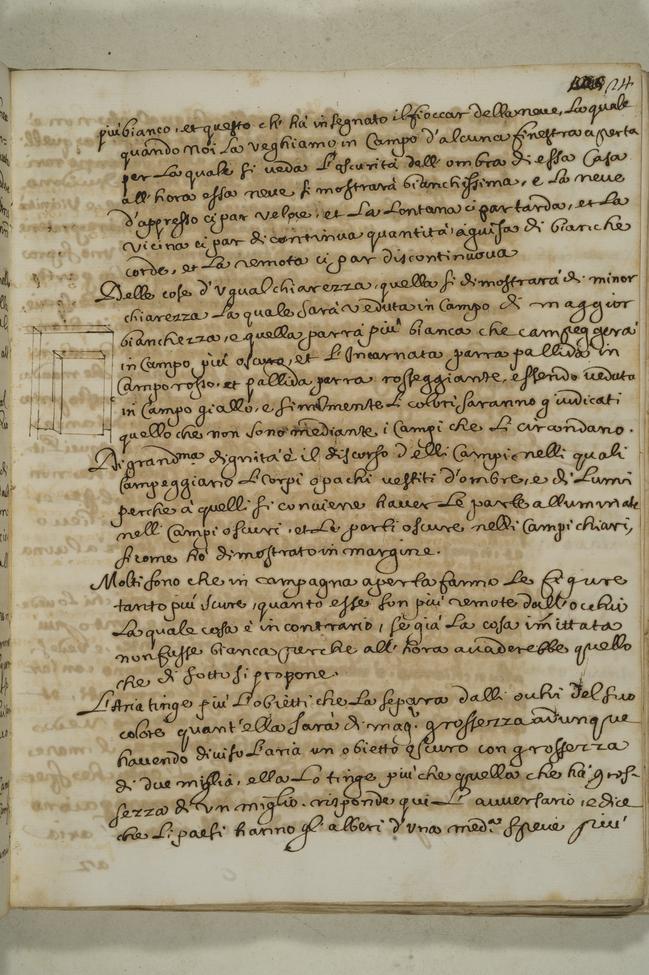 124
più bianco, et questo ch' hà insegnato il fioccar della neve, La quale
quando noi La veghiamo in Campo d'alcuna finestra aperta
per La quale si veda L'oscurità dell' ombra di essa Casa
all' hora essa neve si mostrarà bianchissima, e La neve
d'appresso ci par veloce, et La Lontana ci par tarda, et La
vicina ci par di continua quantità, à guisa di bianche
corde, et La remota ci par discontinuova
Delle cose d'vgual chiarezza, quella si dimostrarà di minor
chiarezza La quale sarà veduta in Campo di maggior
bianchezza, e quella parrà più bianca che campeggerà
in Campo più oscuro, et L'Incarnata parra pallida in
Campo rosso, et pallida parra rosseggiante, essendo veduta
in Campo giallo, e similmente L' colori saranno giudicati
quello che non sono mediante i Campi che Li circondano.
Di grand.ma dignità è il discorso delli Campi nelli quali
Campeggiano L' Corpi opachi vestiti d'ombre, e di Lumi
perche à quelli si conviene haver Le parte alluminate
nelli Campi oscuri, et Le parti oscure nelli Campi chiari,
si come hò dimostrato in margine.
Molti sono che in campagna aperta fanno Le figure
tanto più scure, quanto esse son più remote dall' occhio
La quale cosa è in contrario, se già La cosa imittata
non fusse bianca perche all' hora accaderebbe quello
che di sotto si propone.
L'Aria tinge più L'obietti che La separa dalli ochi del suo
colore quant' ella sarà di mag.r grossezza adunque
havendo diviso L'aria un obietto oscuro con grossezza
di due miglia, ella Lo tinge più che quella che hà gros-
sezza di vn miglio. risponde qui L' avversario, e dice
che Li paesi hanno gl' alberi d'una med.a specie più